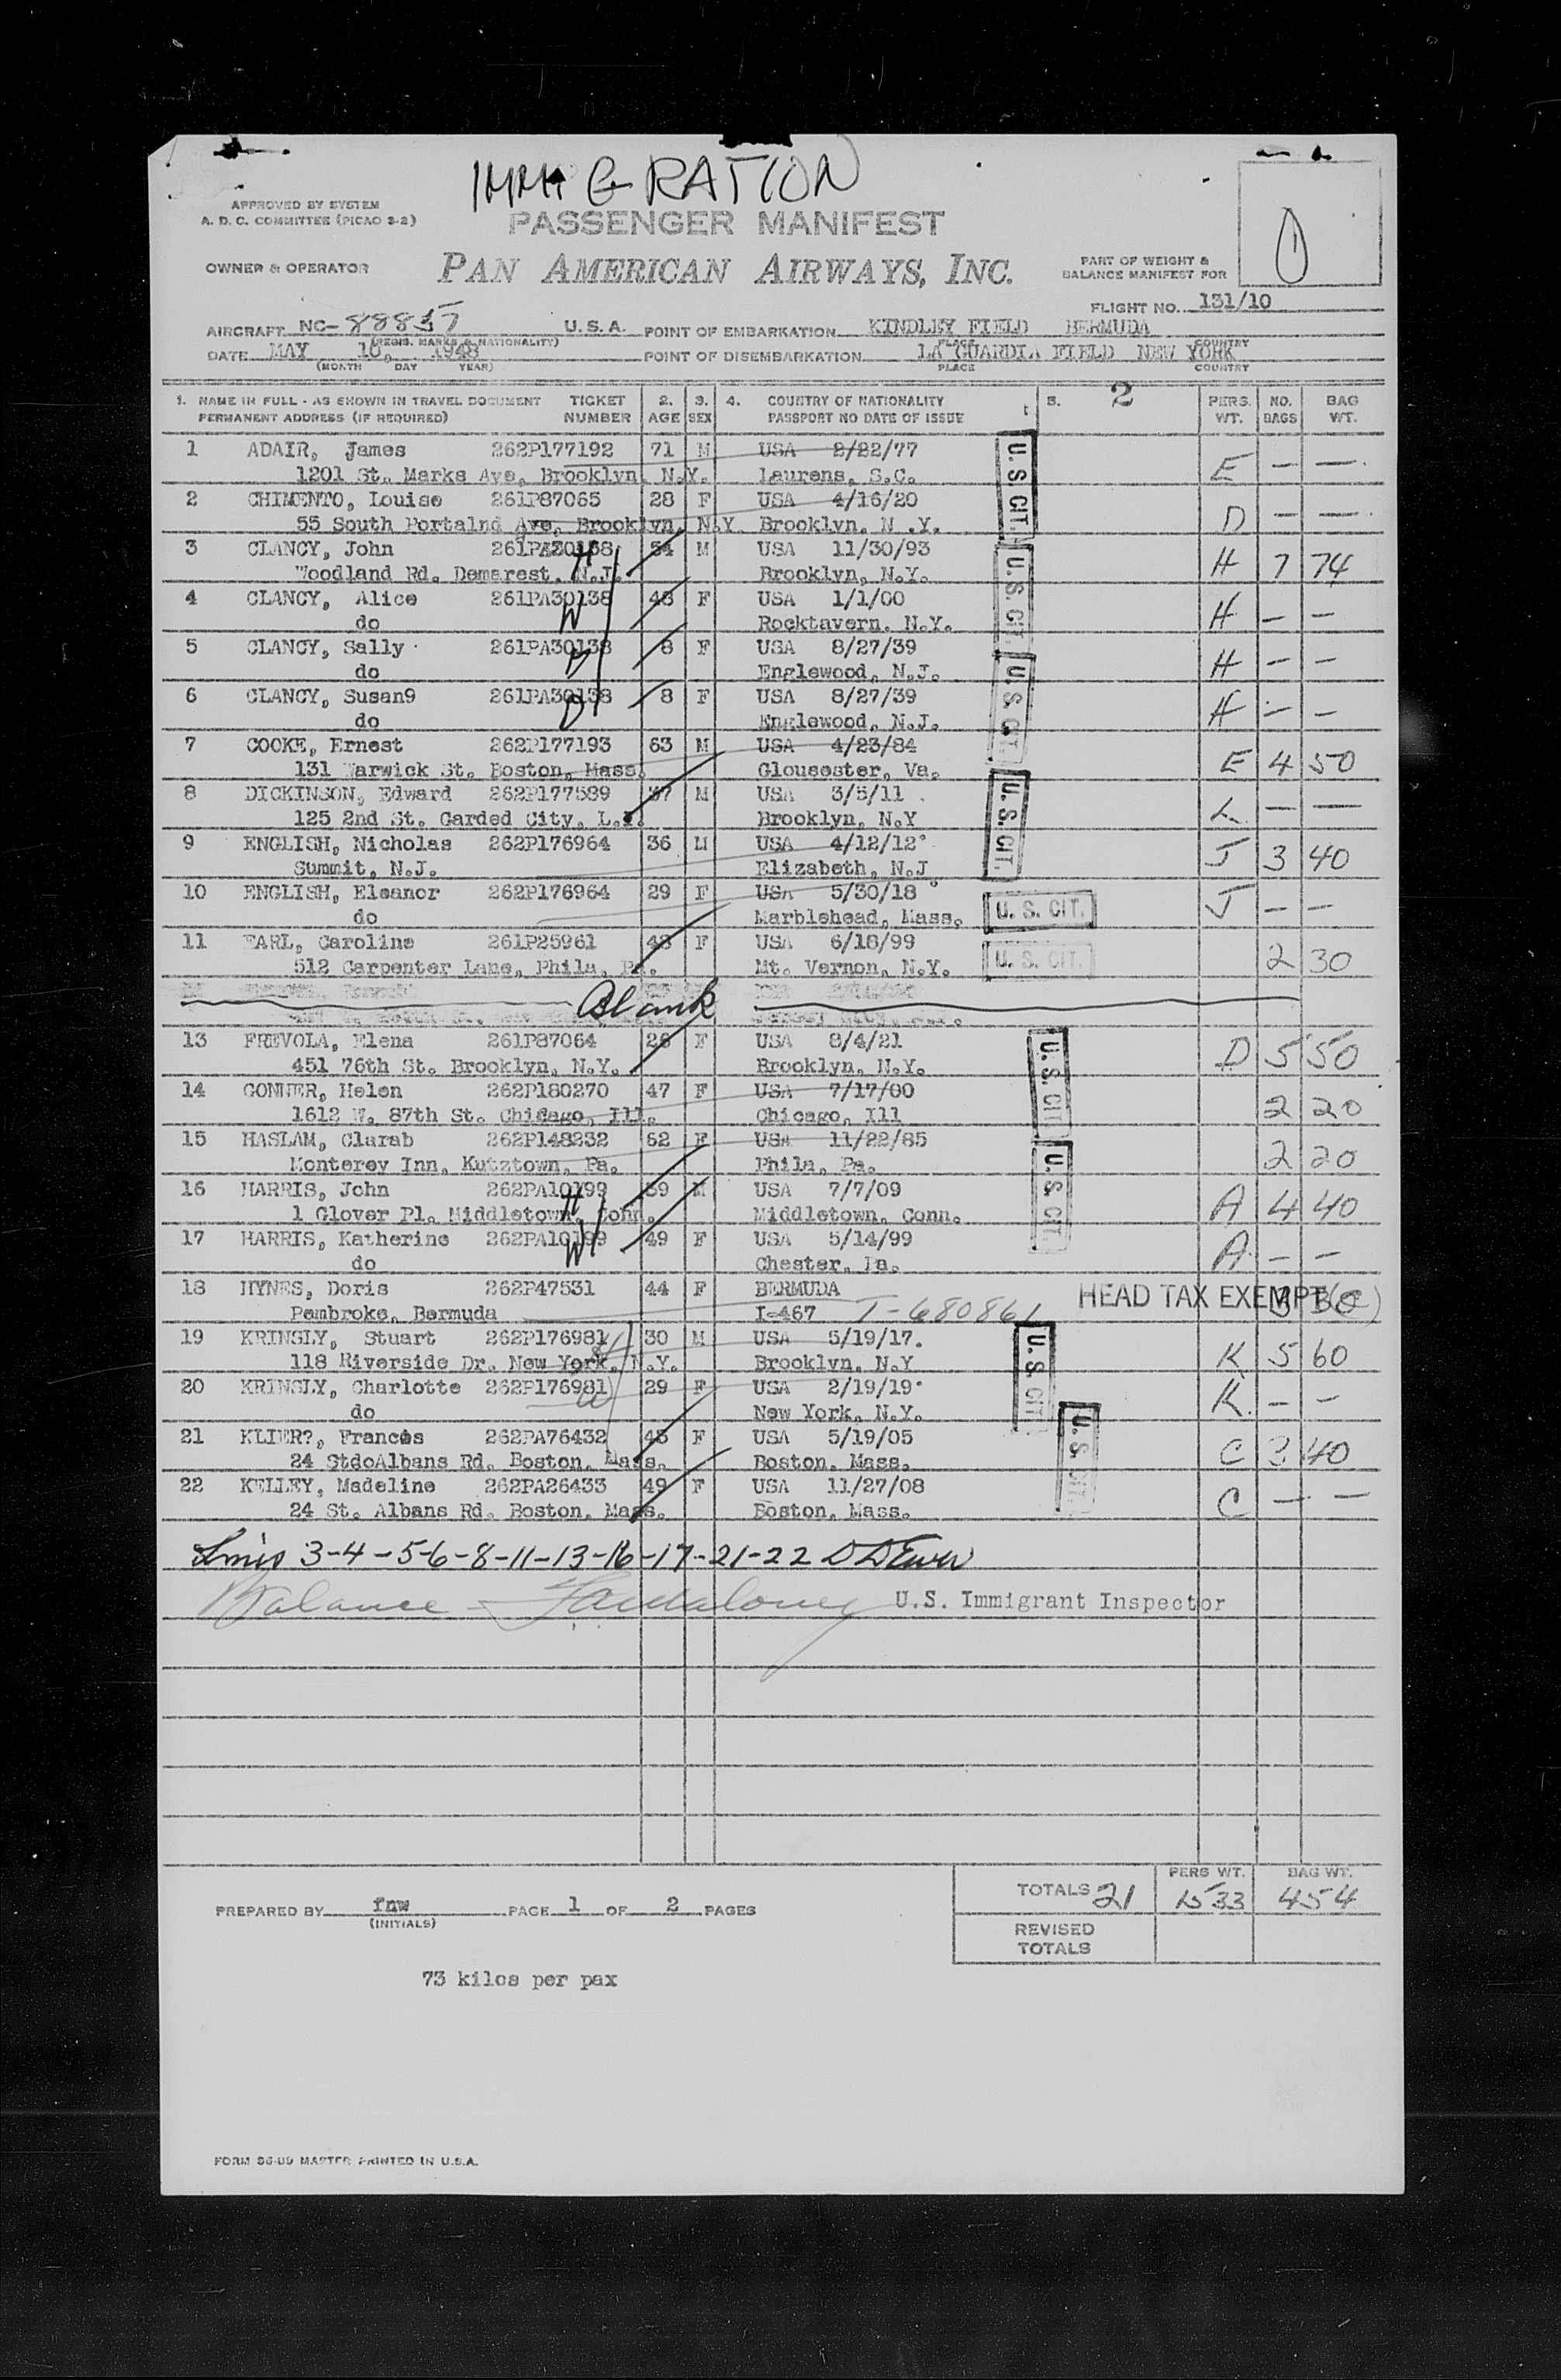 IMMIGRATION
APPROVED BY SYSTEM
A. D. C. COMMITTEE (PICAO S-2)
PASSENGER MANIFEST
OWNER & OPERATOR PAN AMERICAN AIRWAYS, INC.
PART OF WEIGHT &
BALANCE MANIFEST FOR
FLIGHT NO. 131/10
AIRCRAFT NC-88857 U.S.A. POINT OF EMBARKATION KINDLEY FIELD BERMUDA
(REGIS. MARKS & NATIONALITY) PLACE COUNTRY
DATE MAY 10, 1948 POINT OF DISEMBARKATION LA GUARDIA FIELD NEW YORK
(MONTH DAY YEAR) PLACE COUNTRY
1. NAME IN FULL - AS SHOWN IN TRAVEL DOCUMENT TICKET 2. 3. 4. COUNTRY OF NATIONALITY 5. 2 PERS. NO. BAG
PERMANENT ADDRESS (IF REQUIRED) NUMBER AGE SEX PASSPORT NO DATE OF ISSUE WT. BAGS WT.
1 ADAIR, James 262P177192 71 M USA 2/22/77 U.S. CIT.
1201 St. Marks Ave, Brooklyn, N.Y. Laurens, S.C. E — —
2 CHIMENTO, Louise 261P87065 28 F USA 4/16/20
55 South Portalnd Ave, Brooklyn, N.Y. Brooklyn, N .Y. D — —
3 CLANCY, John 261PA30138 54 M USA 11/30/93 U.S. CIT.
Woodland Rd. Demarest, N.J. H Brooklyn, N.Y. H 7 74
4 CLANCY, Alice 261PA30138 48 F USA 1/1/00
do W Rocktavern, N.Y. H — —
5 CLANCY, Sally 261PA30138 8 F USA 8/27/39 U.S. CIT.
do D Englewood, N.J. H — —
6 CLANCY, Susan9 261PA30138 8 F USA 8/27/39
do D Englewood, N.J. H — —
7 COOKE, Ernest 262P177193 63 M USA 4/23/84
131 Warwick St. Boston, Mass. Glousester, Va. E 4 50
8 DICKINSON, Edward 262P177589 37 M USA 3/5/11 U.S. CIT.
125 2nd St. Garded City, L.I. Brooklyn, N.Y L — —
9 ENGLISH, Nicholas 262P176964 36 M USA 4/12/12
Summit, N.J. Elizabeth, N.J J 3 40
10 ENGLISH, Eleanor 262P176964 29 F USA 5/30/18
do Marblehead, Mass. U. S. CIT. J — —
11 EARL, Caroline 261P25961 48 F USA 6/18/99
512 Carpenter Lane, Phila, Pa. Mt. Vernon, N.Y. U. S. CIT. 2 30
Blank
13 FREVOLA, Elena 261P87064 26 F USA 8/4/21 U.S. CIT
451 76th St. Brooklyn, N.Y. Brooklyn, N.Y. D 5 50
14 GONNER, Helen 262P180270 47 F USA 7/17/00
1612 W. 87th St. Chicago, Ill. Chicago, Ill 2 20
15 HASLAM, Clarab 262P148232 62 F USA 11/22/85 U.S. CIT.
Monterey Inn, Kutztown, Pa. Phila, Pa. 2 20
16 HARRIS, John 262PA10199 39 M USA 7/7/09
1 Glover Pl. Middletown, Conn. H Middletown, Conn. A 4 40
17 HARRIS, Katherine 262PA10199 49 F USA 5/14/99
do W Chester, Pa. A — —
18 HYNES, Doris 262P47531 44 F BERMUDA HEAD TAX EXEMPT
Pembroke, Bermuda I-467 T-680861
19 KRINSLY, Stuart 262P176981 30 M USA 5/19/17. U.S. CIT
118 Riverside Dr. New York, N.Y. Brooklyn, N.Y K 5 60
20 KRINSLY, Charlotte 262P176981 29 F USA 2/19/19
do W New York, N.Y. K — —
21 KLIER?, Frances 262PA76432 43 F USA 5/19/05 U.S. CIT.
24 StdoAlbans Rd. Boston, Mass. Boston, Mass. C 3 40
22 KELLEY, Madeline 262PA26433 49 F USA 11/27/08
24 St. Albans Rd. Boston, Mass. Boston, Mass. C — —
3-4-5-6-8-11-13-16-17-21-22
Balance U.S. Immigrant Inspector
PERS WT. BAG WT.
TOTALS 21 1533 454
PREPARED BY fnw PAGE 1 OF 2 PAGES
(INITIALS)
REVISED
TOTALS
73 kilos per pax
FORM MASTER PRINTED IN U.S.A.